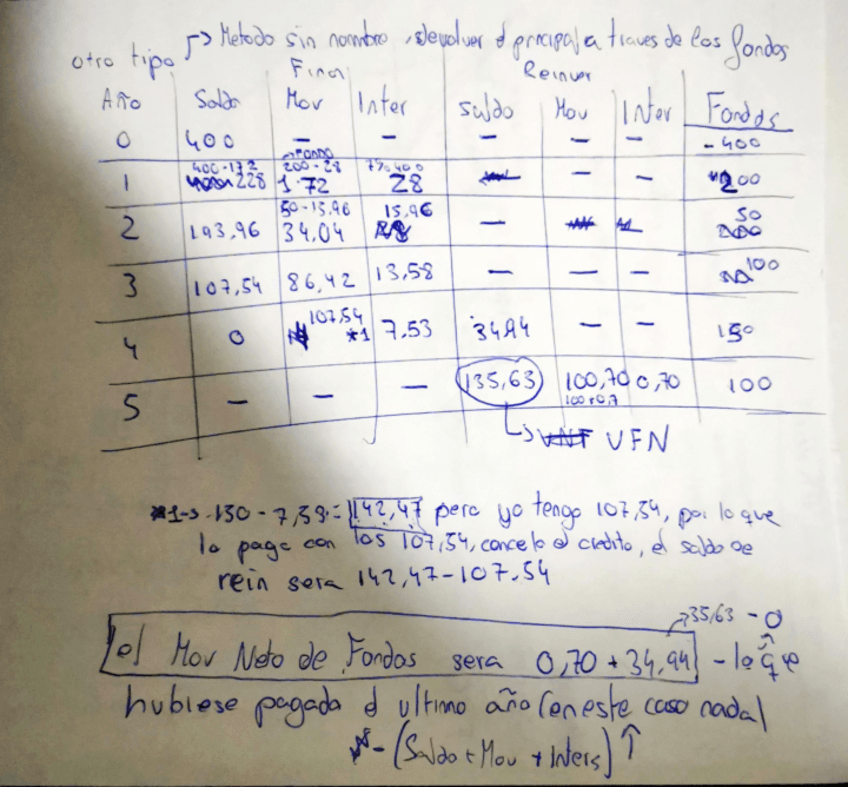 otro tipo → Metodo sin nombre, devolver el principal a traves de los fondos
Finan Reinver
Año Saldo Mov Inter Saldo Mov Inter Fondos
0 400 — — — — — -400
400-172 → FONDO 200-28 7% 400
1 228 1.72 28 — — — 200
50-15,96 15,96 50
2 193,96 34,04 —
3 107,54 86,42 13,58 — — — 100
4 0 107,54 *1 7.53 34,94 — — 150
5 — — — 135,63 100,70 0,70 100
100+0,7
↳ VFN
*1→ 150 - 7,53 = 142,47 pero yo tengo 107,54, por lo que
lo paga con los 107,54, cancelo el credito, el saldo de
rein sera 142,47-107.54
→ 35,63 - 0
el Mov Neto de Fondos sera 0,70 + 34,94 - lo que
hubiese pagado el ultimo año (en este caso nada)
- (Saldo + Mov + Inters) ↑